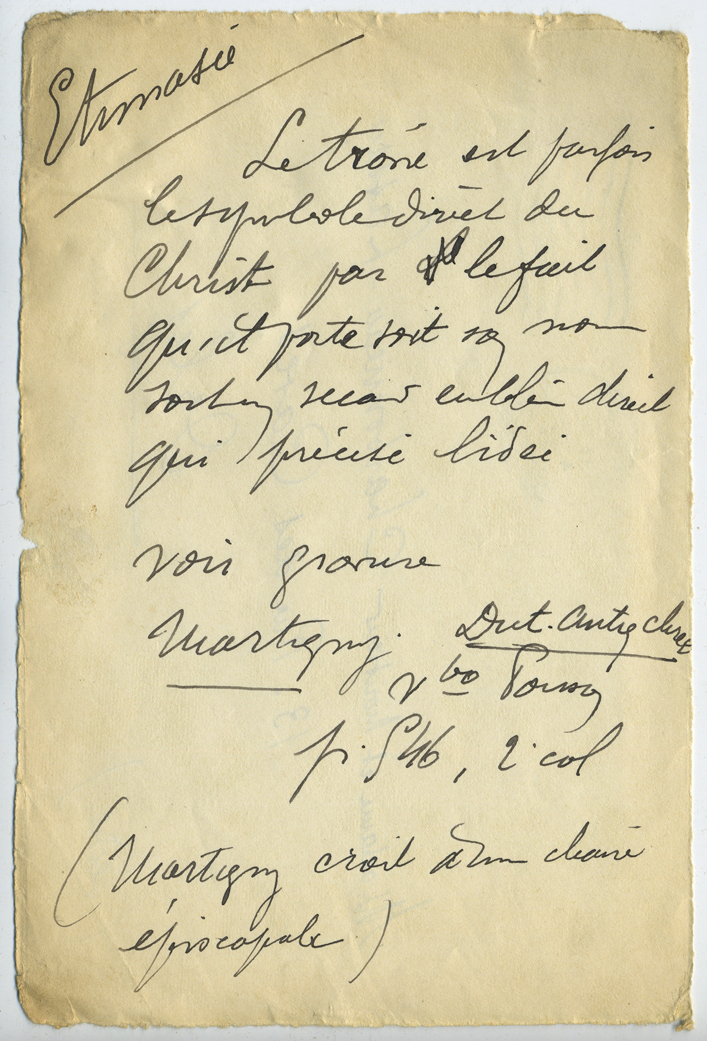 Etimasie
Le trône est parfois
le symbole direct du
Christ par le fait
qu'il porte soit son nom
soit un second emblème direct
qui précise l'idée
voir gravure
Martigny. Dict. Antiq chret
v bo Poisson
p. 546, 2e col
(Martigny croit à une chaire
épiscopale)